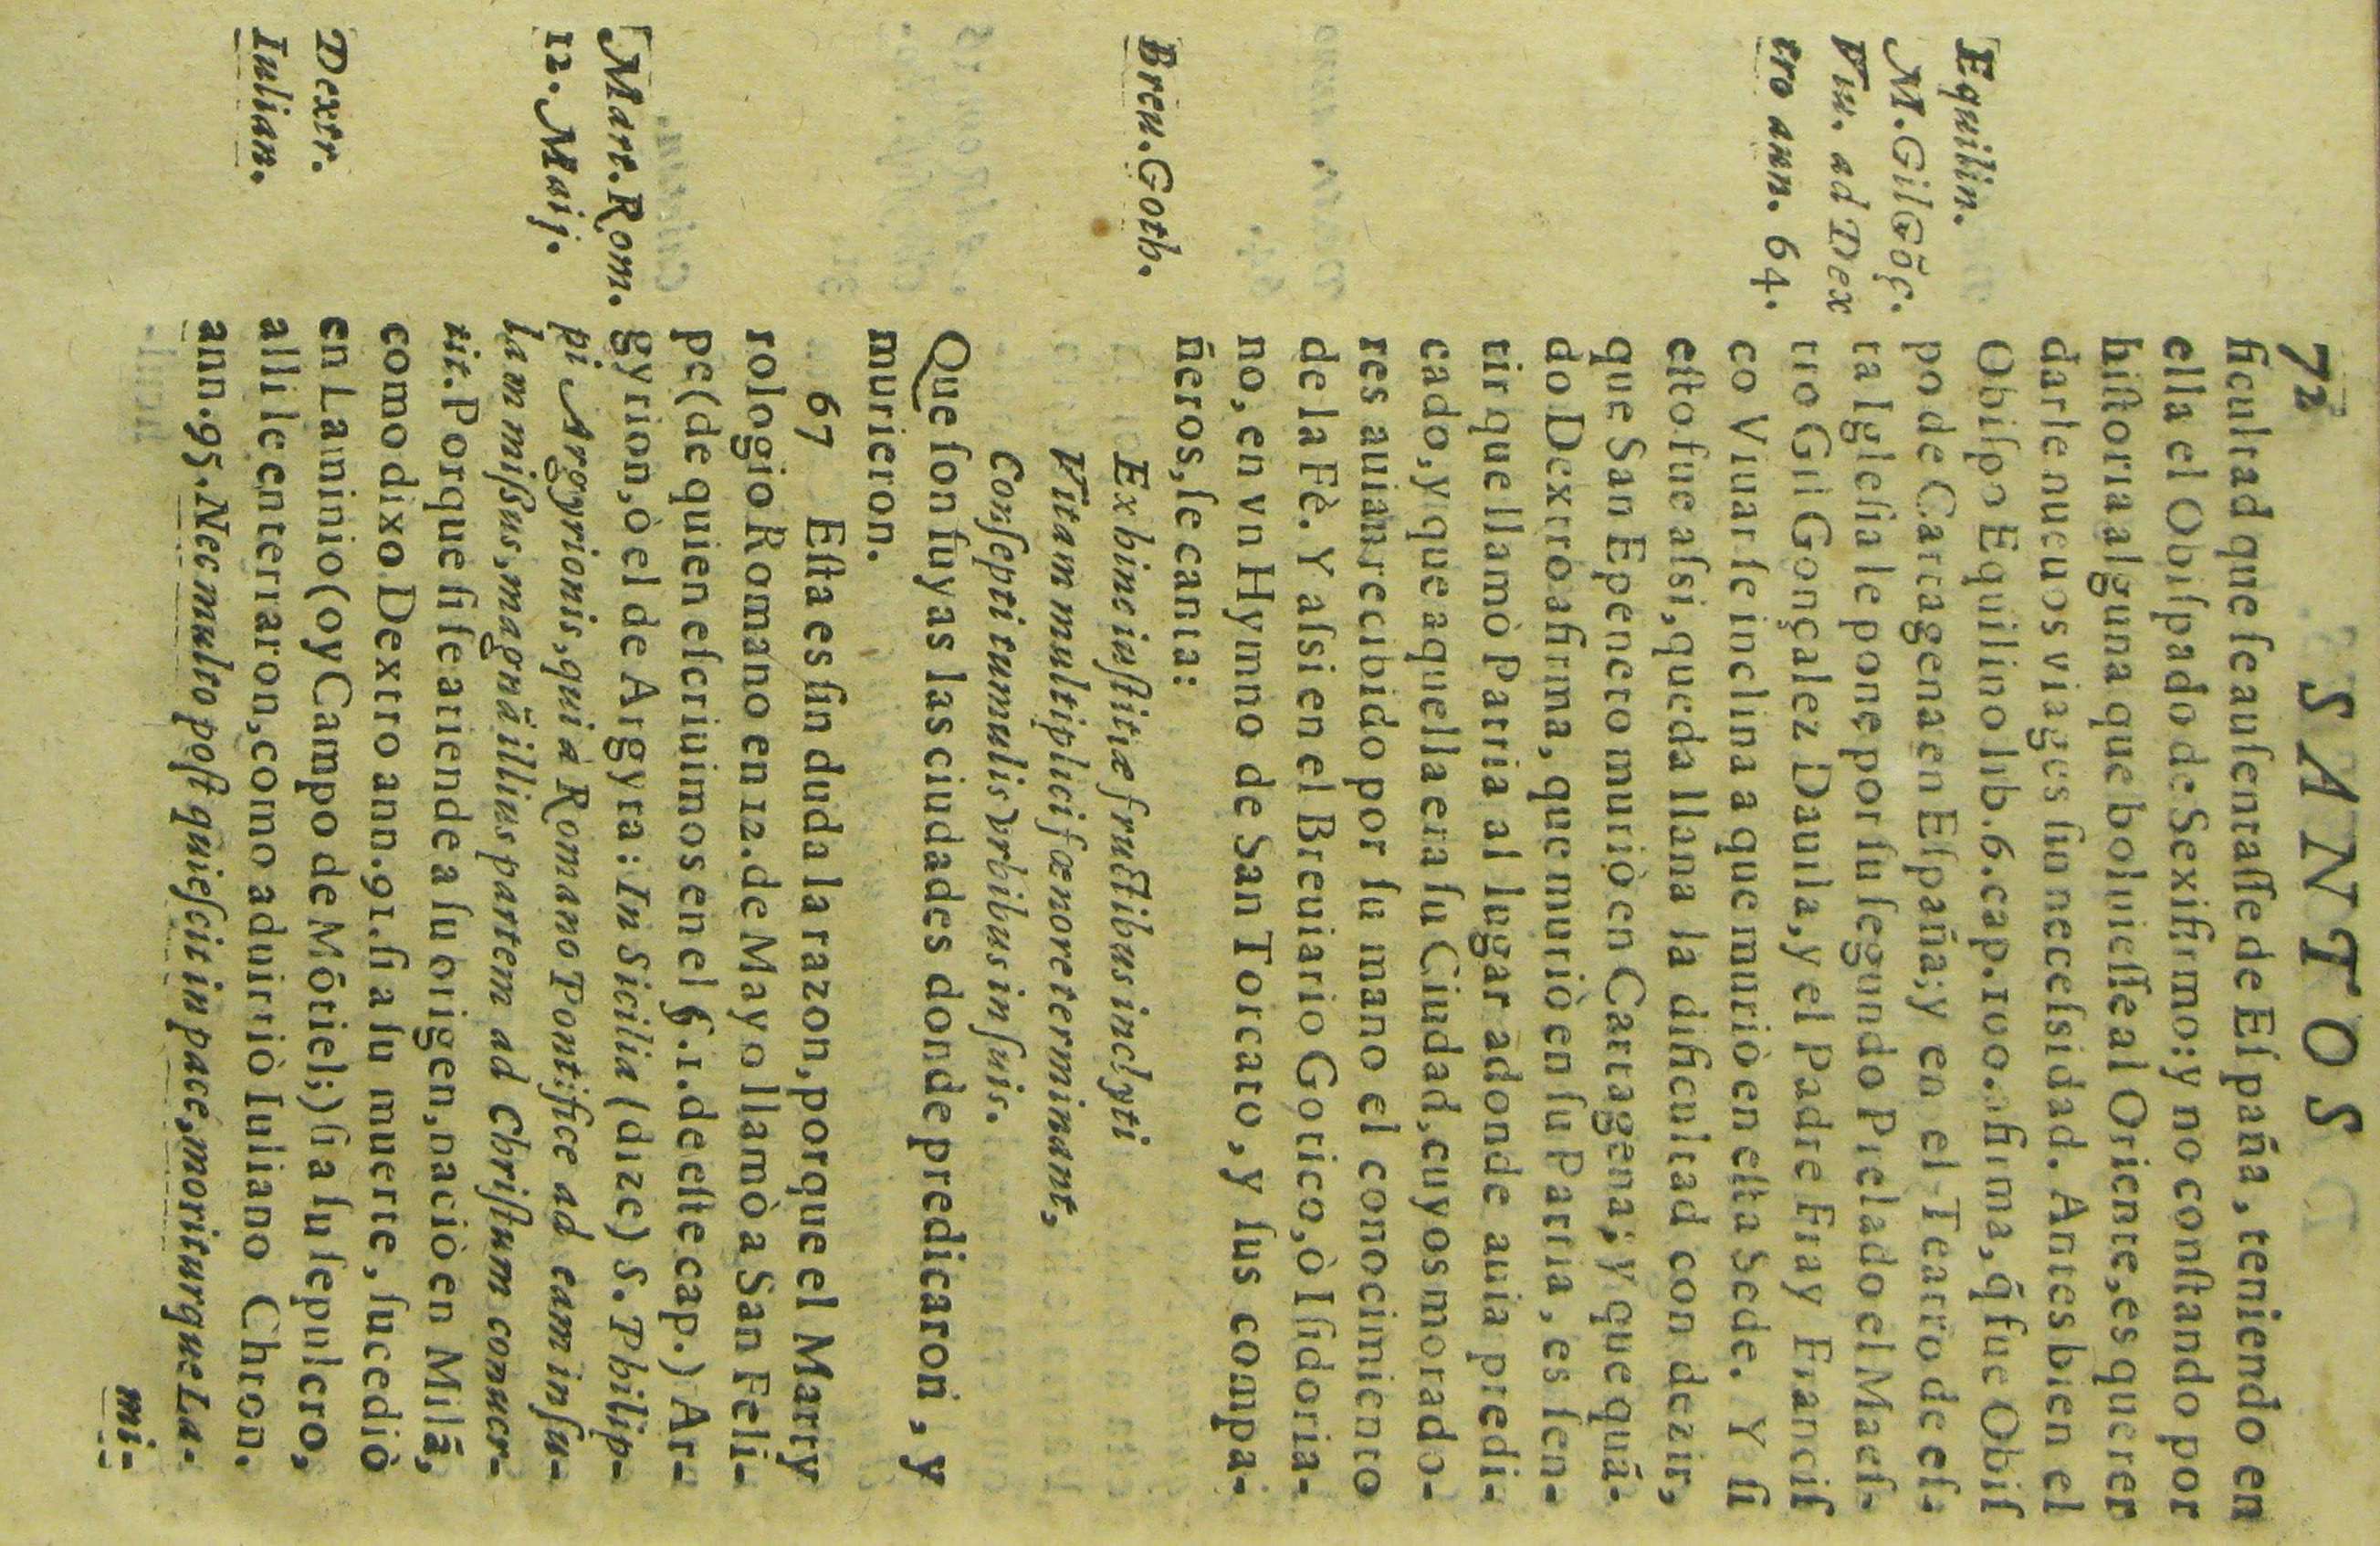 72 SANTOS
ficultad que ſe auſentaſſe de Eſpaña, teniendo en
ella el Obiſpado de Sexifirmo: y no conſtando por
hiſtoria alguna que boluieſſe al Oriente, es querer
darle nueuos viages ſin neceſsidad. Antes bien el
Equilin.
Obiſpo Equilino lib. 6. cap. 100. afirma, q̃ fue Obiſ
M. Gil Gõç.
po de Cartagena en Eſpaña; y en el Teatro de eſ-
Viu. ad Dex
ta Igleſia le pone por ſu ſegundo Prelado el Maeſ-
tro ann. 64.
tro Gil Gonçalez Dauila, y el Padre Fray Franciſ
co Viuar ſe inclina a que muriò en eſta Sede. Y ſi
eſto fue aſsi, queda llana la dificultad con dezir,
que San Epeneto muriò en Cartagena; y que quã-
do Dextro afirma, que muriò en ſu Patria, es ſen-
tir que llamò Patria al lugar adonde auia predi-
cado, y que aquella era ſu Ciudad, cuyos morado-
res auian recibido por ſu mano el conocimiento
de la Fè. Y aſsi en el Breuiario Gotico, ò Iſidoria-
no, en vn Hymno de San Torcato, y ſus compa-
Breu. Goth.
ñeros, ſe canta:
Ex hinc iuſtitiæ fructibus inclyti
Vitam multiplici fœnore terminant,
Conſepti tumulis vrbibus in ſuis.
Que ſon ſuyas las ciudades donde predicaron, y
murieron.
67 Eſta es ſin duda la razon, porque el Marty
rologio Romano en 12. de Mayo llamò a San Feli-
pe (de quien eſcriuimos en el §. 1. de eſte cap.) Ar-
Mart. Rom.
gyrion, ò el de Argyra: In Sicilia (dize) S. Philip-
12. Maij.
pi Argyrionis, qui à Romano Pontifice ad eam inſu-
lam miſſus, magnã illius partem ad Chriſtum conuer-
tit. Porque ſi ſe atiende a ſu origen, naciò en Milã,
como dixo Dextro ann. 91. ſi a ſu muerte, ſucediò
Dextr.
en Laminio (oy Campo de Mõtiel;) ſi a ſu ſepulcro,
Iulian.
alli le enterraron, como aduirtiò Iuliano Chron.
ann. 95. Nec multo poſt quieſcit in pace, moriturque La-
mi-